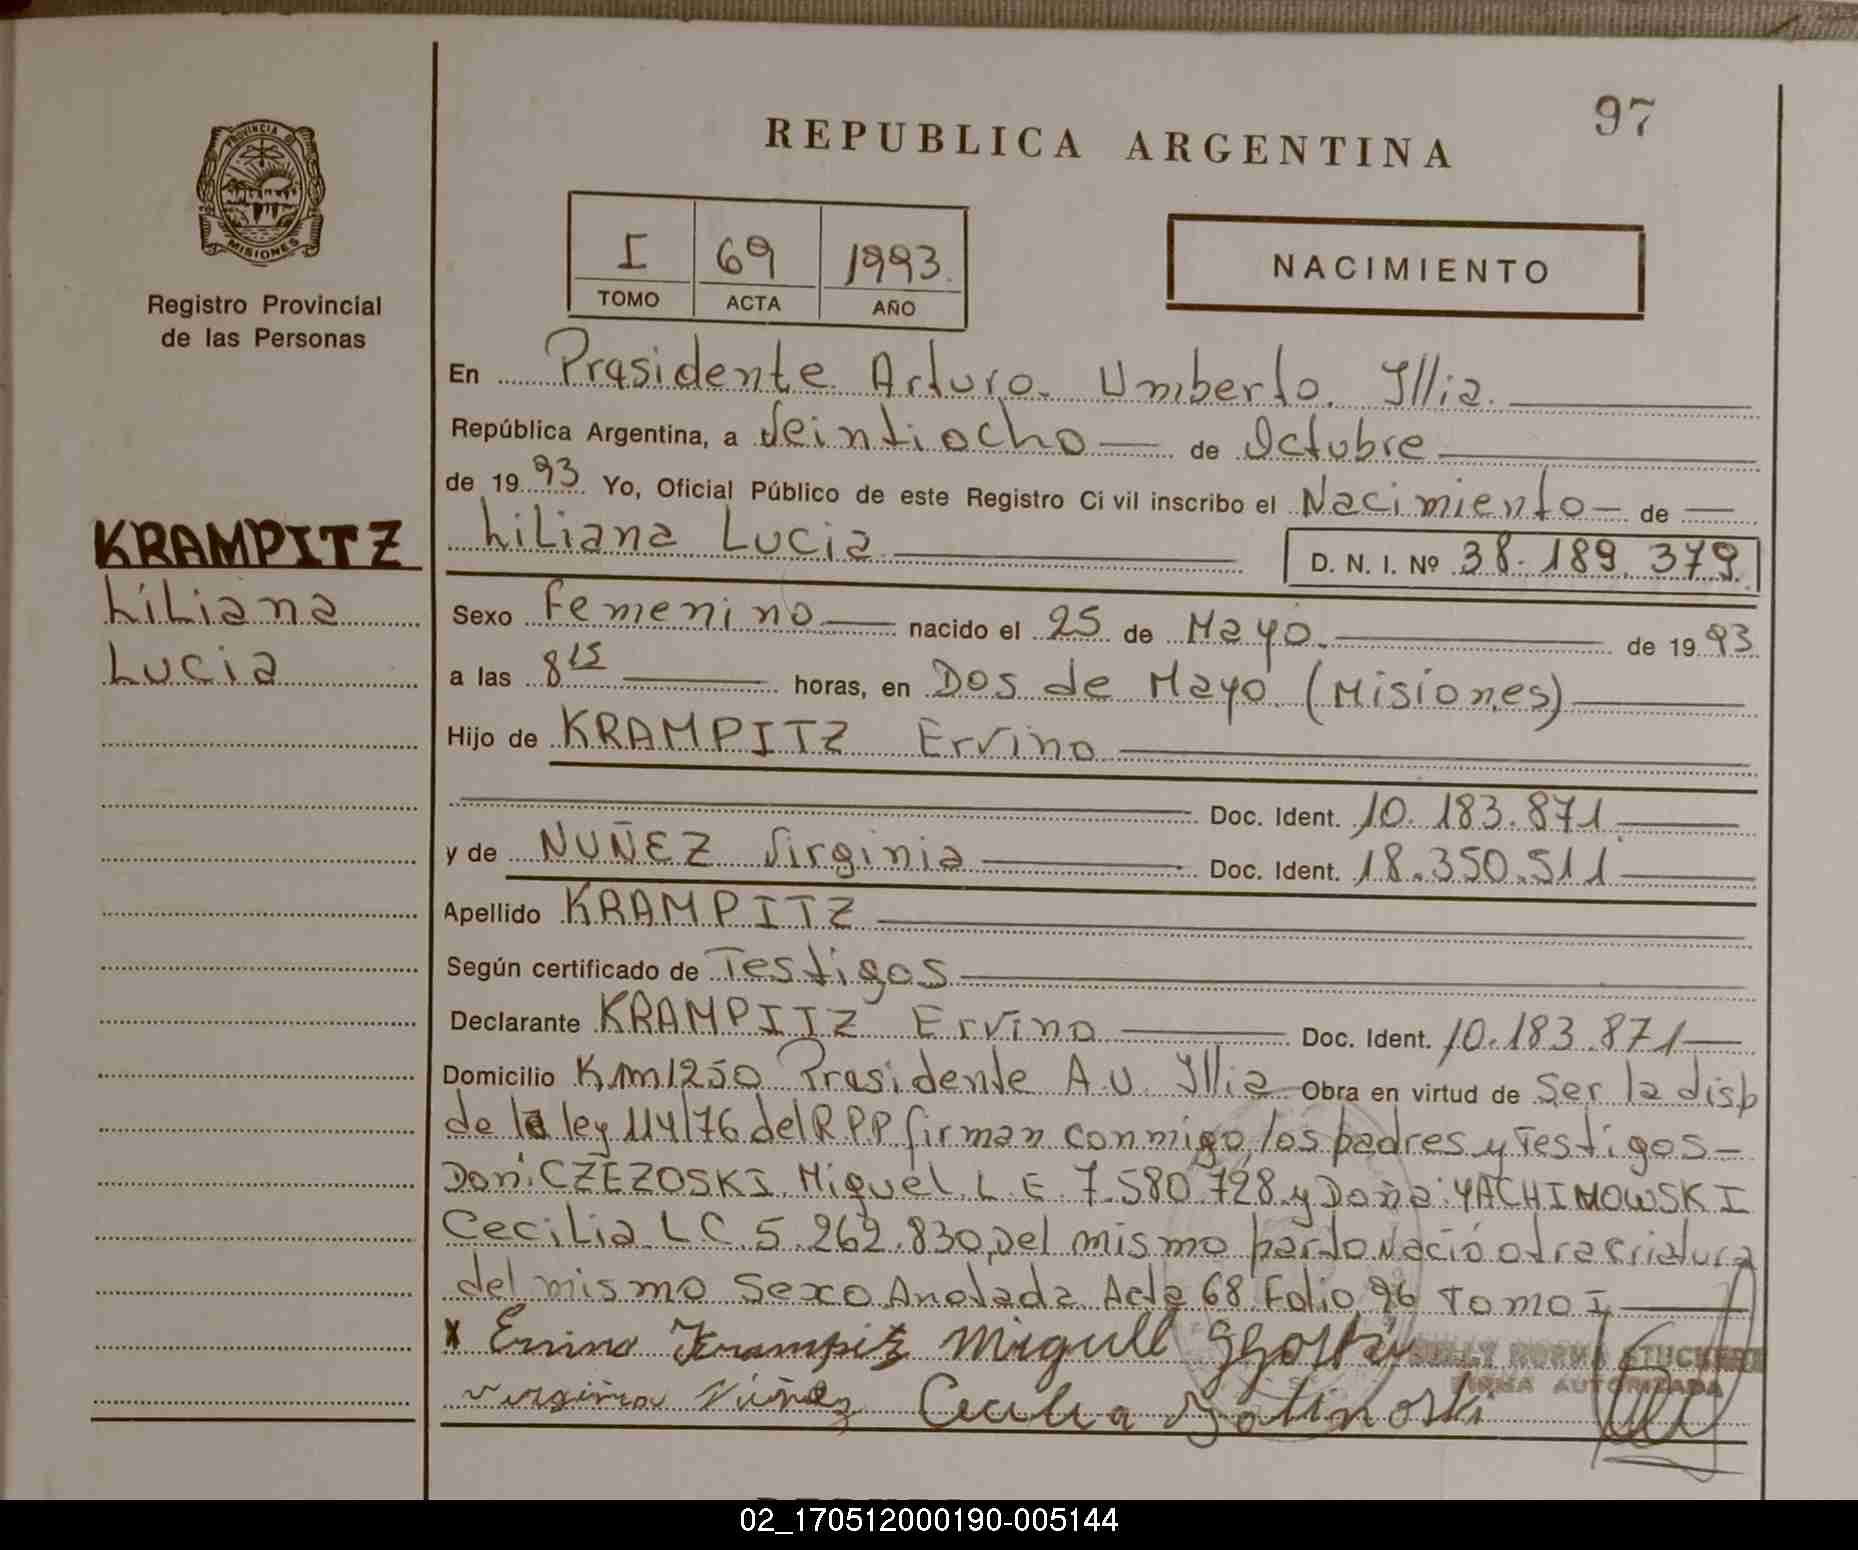 97
REPUBLICA ARGENTINA
PROVINCIA DE
MISIONES
Registro Provincial
de las Personas
I 69 1993
TOMO ACTA AÑO
NACIMIENTO
En Presidente Arturo Umberto Illia
República Argentina, a Veintiocho de Octubre
de 1993 Yo, Oficial Público de este Registro Civil inscribo el Nacimiento de
Liliana Lucia D. N. I. Nº 38.189.379
KRAMPITZ
Liliana
Lucia
Sexo Femenino nacido el 25 de Mayo de 1993
a las 8 15 horas, en Dos de Mayo (Misiones)
Hijo de KRAMPITZ Ervino
Doc. Ident. 10.183.871
y de NUÑEZ Virginia Doc. Ident. 18.350.511
Apellido KRAMPITZ
Según certificado de Testigos
Declarante KRAMPITZ Ervino Doc. Ident. 10.183.871
Domicilio Km 1250 Presidente A.U. Illia Obra en virtud de Ser la disp
de la ley 114/76 del RPP firman conmigo los padres y Testigos
Don: CZEZOSKI Miguel L E 7.580.728 y Doña: YACHIMOWSKI
Cecilia LC 5.262.830, Del mismo parto Nació otra criatura
del mismo Sexo Anotada Acta 68 Folio 96 Tomo I
x Ervino Krampitz Miguel
Virginia Núñez Cecilia
NELLY NORMA STUCKERT
FIRMA AUTORIZADA
02_170512000190-005144